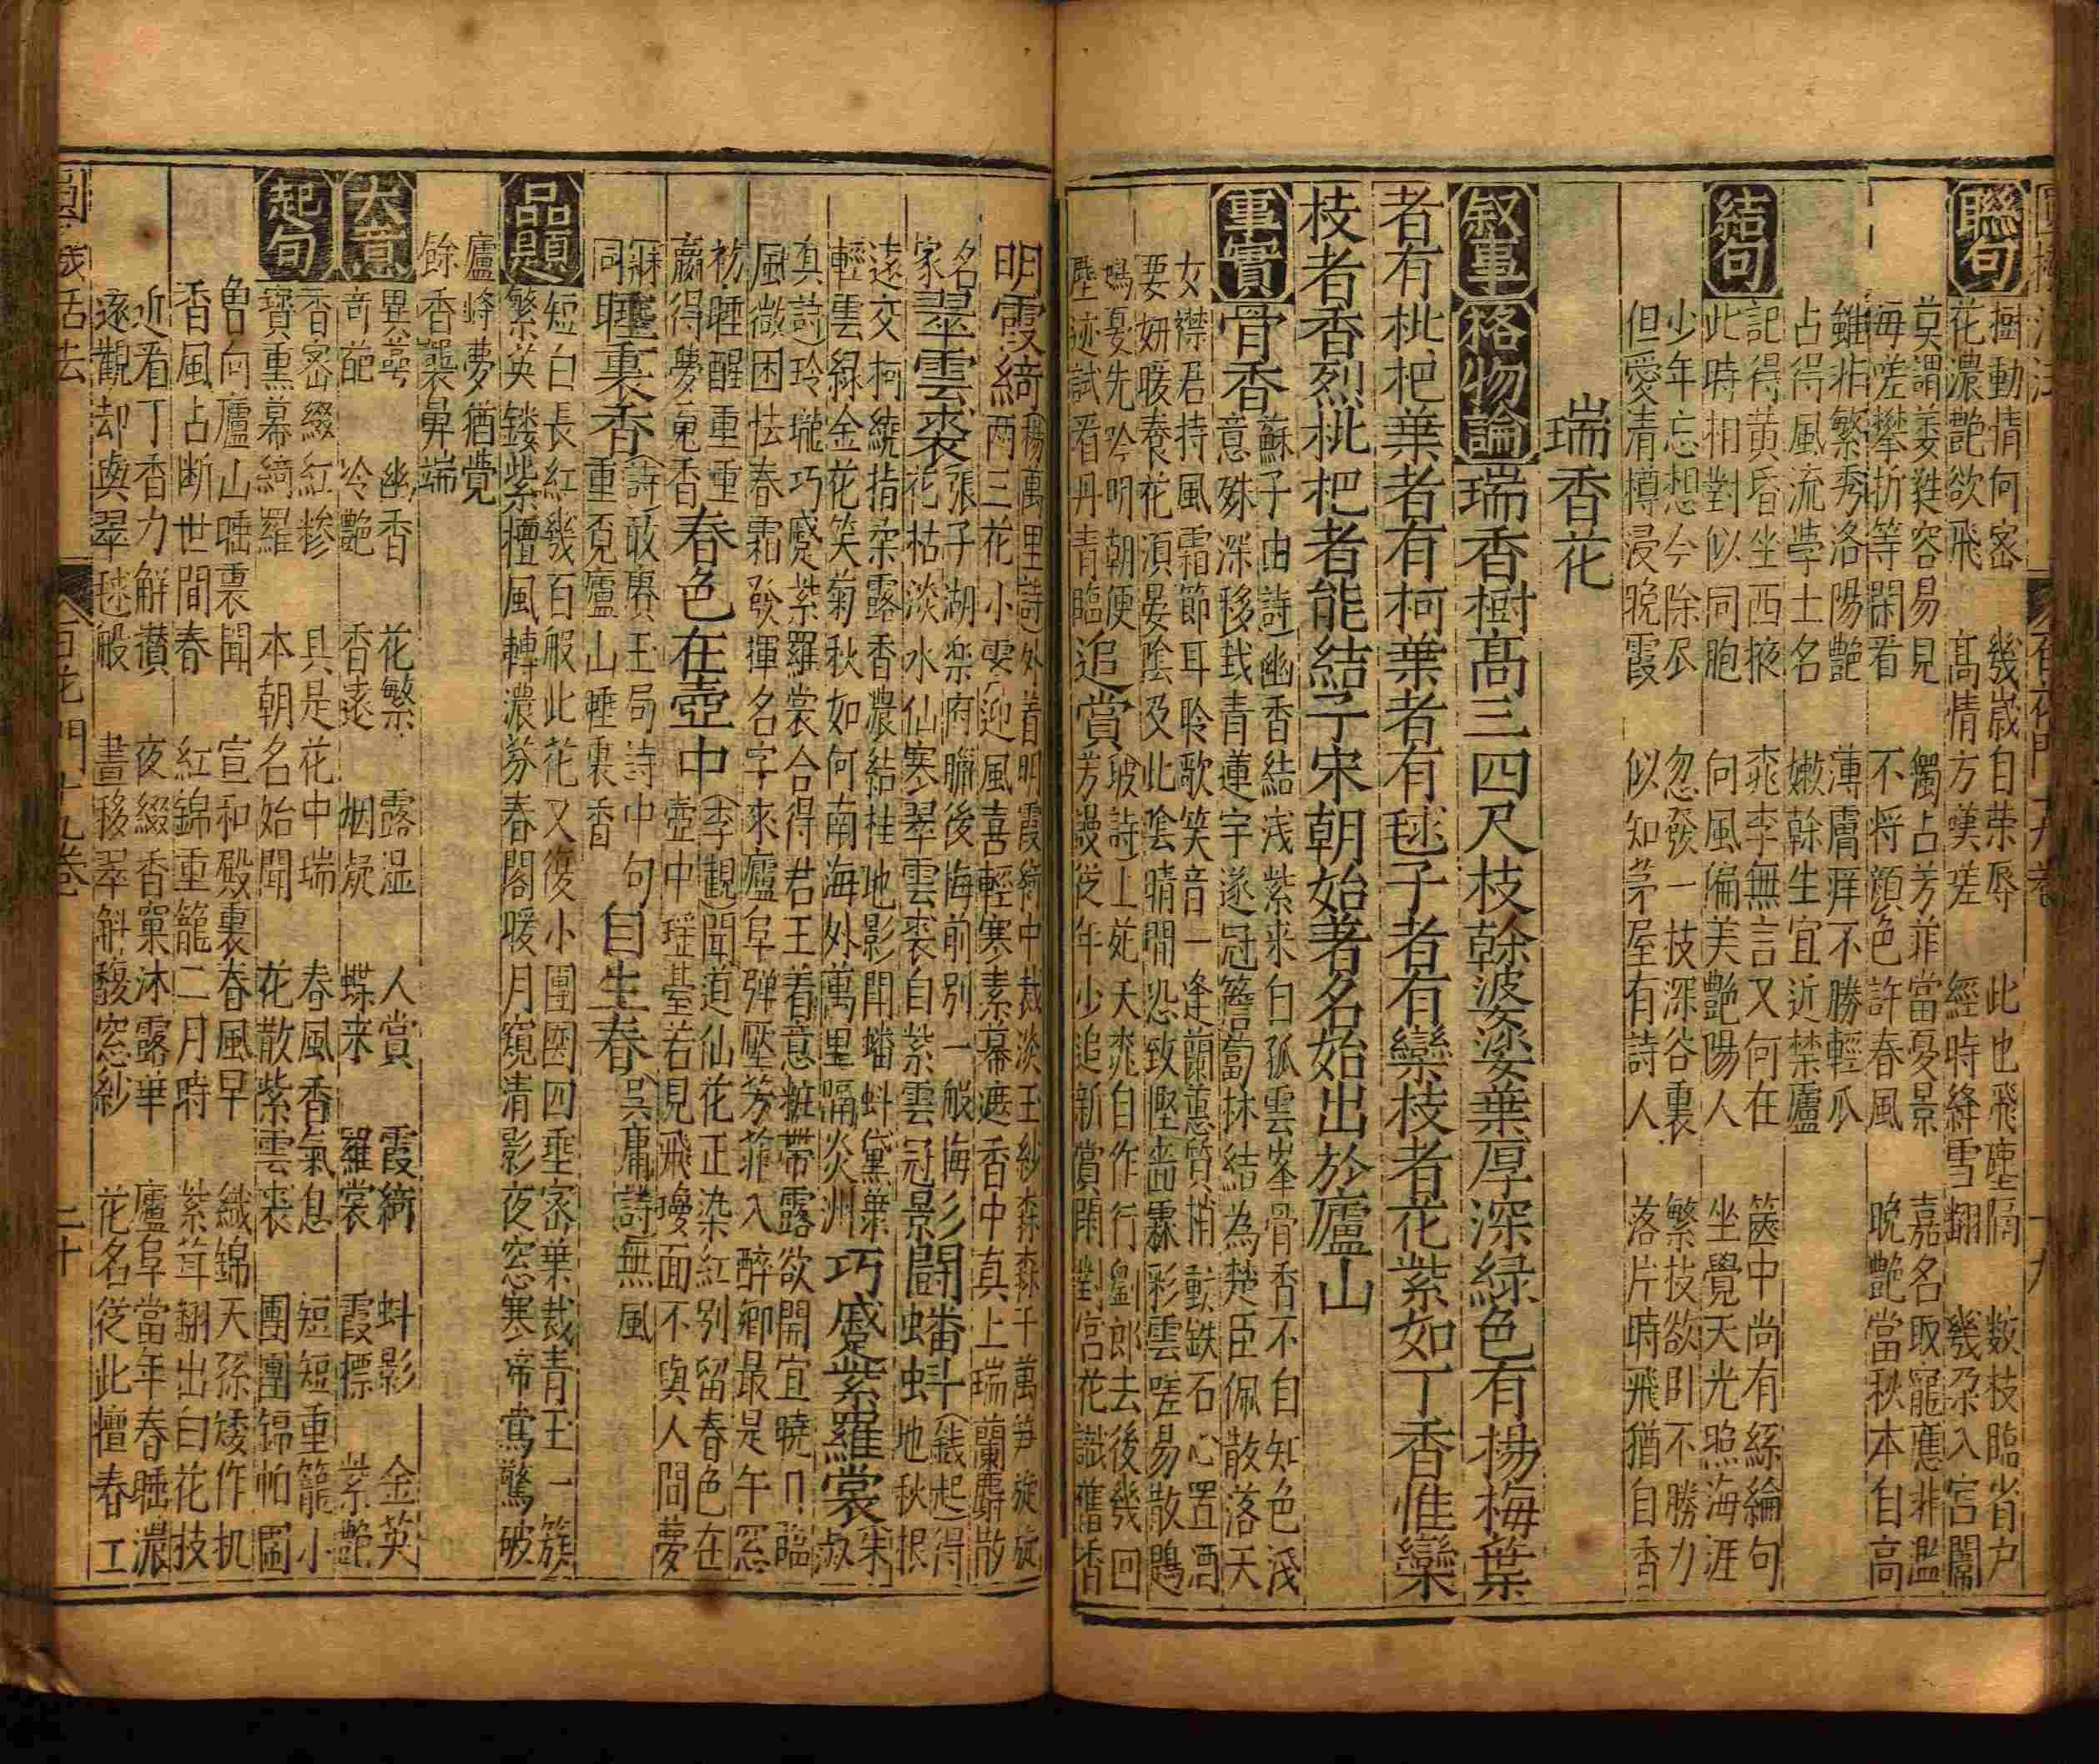 聯句
樹動情何密 幾歲自荣辱 此也飛塵隔 数枝臨省户
花濃艶欲飛 髙情方嘆嗟 經時絳雪翻 幾朶入宫闈
莫謂萎蕤容易見 獨占芳菲當憂景 嘉名取寵應非濫
海嗟攀折等閑看 不将顔色許春風 晩艶當秋本自高
雖非繁秀洛陽艶 薄膚痒不勝輕爪
占得風流學士名 嫩榦生宜近禁廬
結句
記得黄昏坐西掖 桃李無言又何在 篋中尚有絲綸句
此時相對似同胞 向風偏美艶陽人 坐覺天光照海涯
少年忘想今除尽 忽發一技深谷裏 繁技欲卧不勝力
但愛清樽浸晩霞 似知茅屋有詩人 落片時飛猶自香
瑞香花
叙事 格物論 瑞香樹髙三四尺枝榦婆娑葉厚深緑色有楊梅葉
者有枇杷葉者有柯葉者有毬子者有欒枝者花紫如丁香惟欒
枝者香烈枇杷者能結子宋朝始著名始出於廬山
事實
骨香 蘇子由詩幽香結浅紫来白孤雲峯骨香不自知色浅
意殊深移栽青蓮宇遂冠簷蔔林結為楚臣佩散落天
女襟君持風霜節耳聆歌笑音一逢蘭蕙質梢動鉄石心置酒
要妍暖養花湏晏隂及此隂晴間恐致慳嗇霖彩雲嗟易散鶗
鴂憂先吟明朝便
陸迹試看丹青臨 追賞 坡詩上苑夭桃自作行劉郎去後幾回
芳謾從年少追新賞閑對宫花識舊香
明霞綺 楊萬里詩外着明霞綺中裁淡玉紗森森千萬笋旋旋
两三花小霎迎風喜輕寒素幕遮香中真上瑞蘭麝散
名
家 翠雲裘 張子湖楽府臈後梅前别一般梅彡
花枯淡水仙寒翠雲裘自紫雲冠景 闘蟠蚪 錢起得
地秋根
遠交柯繞指柔露香濃結桂地影閗蟠蚪黛葉
輕雲緑金花笑菊秋如何南海外萬里隔炎洲 巧蹙紫羅裳 朱
淑
真詩玲瓏巧蹙紫羅裳合得君王着意粧帶露欲開宜曉日臨
風微困怯春霜發揮名字來廬阜彈壓芳菲入醉鄉最是午窓
初睡醒重重
贏得夢䰟香 春色在壺中 李觀聞道仙花正染紅别留春色在
壺中瑶臺若見飛瓊面不與人間夢
寐
同 睡裏香 詩敢賡玉局詩中句
重覓廬山睡裏香 自生春 吴庸詩無風
品題
短白長紅幾百般此花又復小團圓四垂密葉裁青玉一簇
繁英鏤紫檀風轉濃芬春閣暖月窺清影夜窓寒帘鴬驚破
廬峰夢猶覺
餘香襲鼻端
大意
異蕚 幽香 花繁 露湿 人賞 霞綺 蚪影 金英
奇葩 冷艶 香遠 烟凝 蝶来 羅裳 霞標 紫艶
起句
香密綴紅掺 具是花中瑞 春風香氣息 短短重籠小
寳熏幕綺羅 本朝名始聞 花散紫雲裘 團團錦帕圍
曽向廬山睡裏聞 宣和殿裏春風早 織錦天孫矮作机
香風占断世間春 紅錦重籠二月時 紫茸翻出白花技
近看丁香力觧攅 夜綴香窠沐露華 廬阜當年春睡濃
逺觀却與翠毬般 晝移翠斛馥窓紗 花名従此擅春工
百花門十九卷
二十